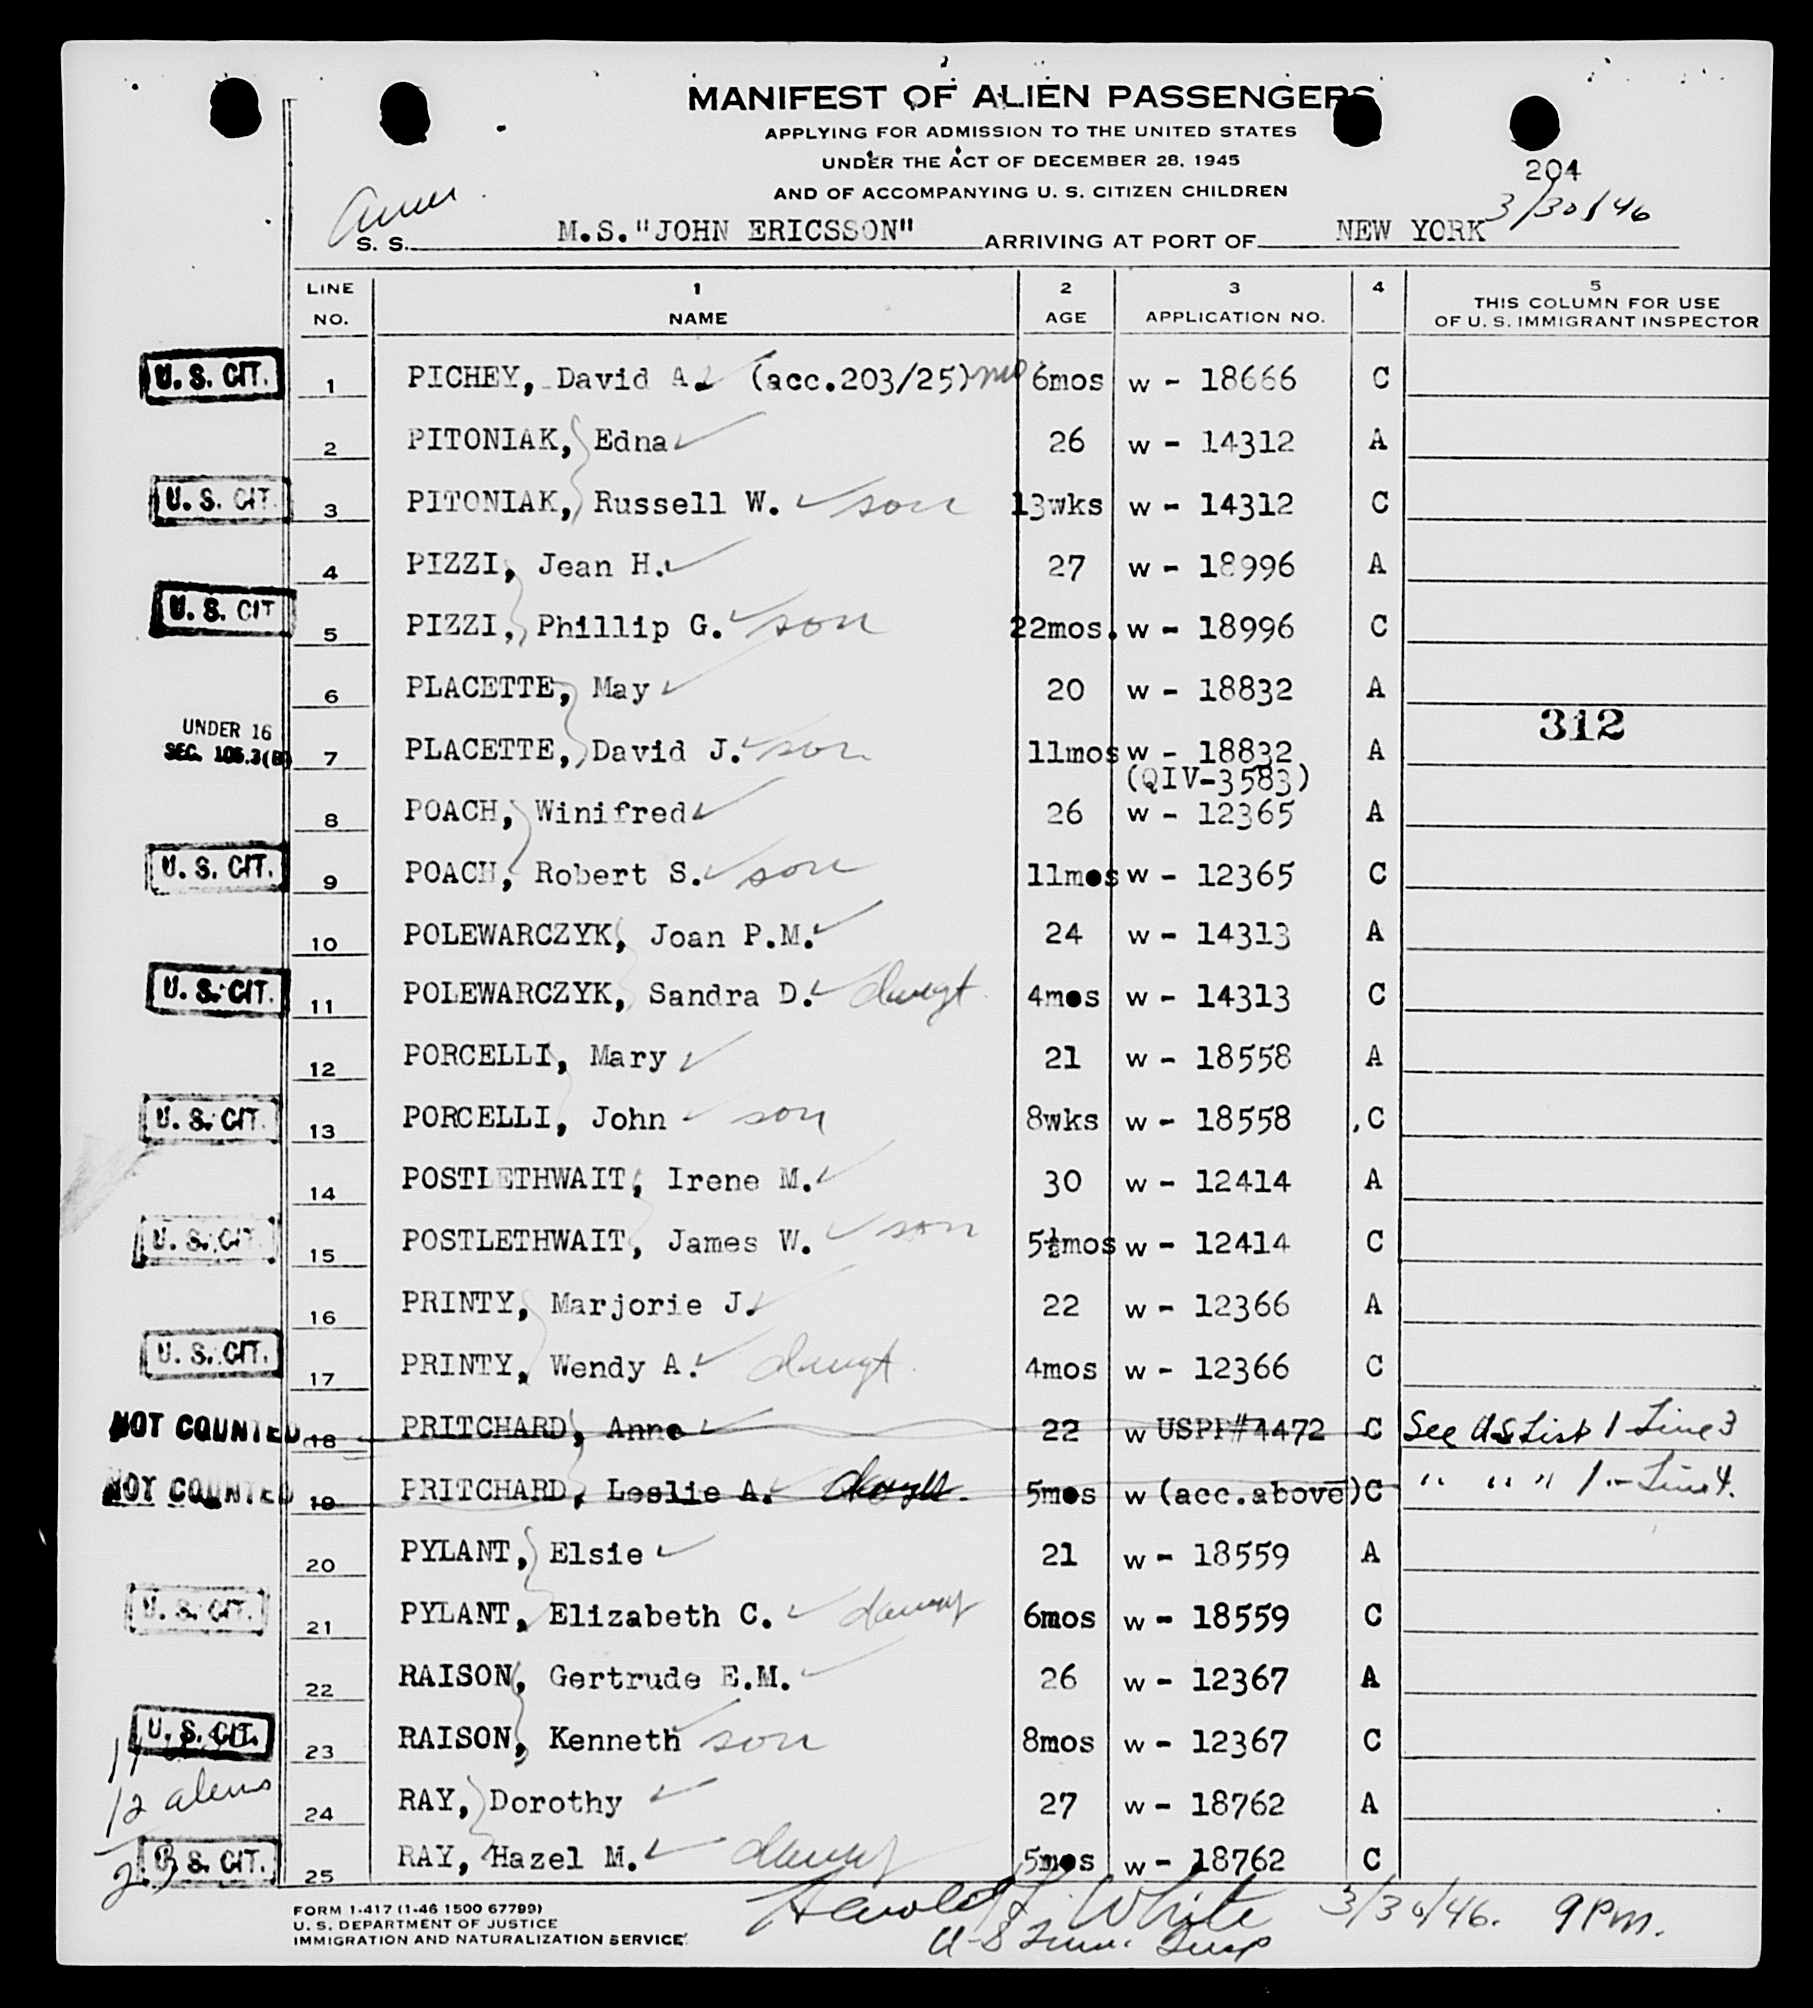 MANIFEST OF ALIEN PASSENGERS
APPLYING FOR ADMISSION TO THE UNITED STATES
UNDER THE ACT OF DECEMBER 28, 1945
AND OF ACCOMPANYING U. S. CITIZEN CHILDREN
204
3/30/46
S. S. M.S."JOHN ERICSSON" ARRIVING AT PORT OF NEW YORK
LINE NO. 1 NAME 2 AGE 3 APPLICATION NO. 4 5 THIS COLUMN FOR USE OF U. S. IMMIGRANT INSPECTOR
U. S. CIT. 1 PICHEY, David A. (acc.203/25) 6mos w - 18666 C
2 PITONIAK, Edna 26 w - 14312 A
U. S. CIT. 3 PITONIAK, Russell W. son 13wks w - 14312 C
4 PIZZI, Jean H. 27 w - 18996 A
U. S. CIT 5 PIZZI, Phillip G. son 22mos. w - 18996 C
6 PLACETTE, May 20 w - 18832 A
312
UNDER 16 SEC. 106.3(B) 7 PLACETTE, David J. son 11mos w - 18832 A
(QIV-3583)
8 POACH, Winifred 26 w - 12365 A
U. S. CIT. 9 POACH, Robert S. son 11mos w - 12365 C
10 POLEWARCZYK, Joan P.M. 24 w - 14313 A
U. S. CIT. 11 POLEWARCZYK, Sandra D. daugt 4mos w - 14313 C
12 PORCELLI, Mary 21 w - 18558 A
U. S. CIT. 13 PORCELLI, John son 8wks w - 18558 C
14 POSTLETHWAIT, Irene M. 30 w - 12414 A
U. S. CIT. 15 POSTLETHWAIT, James W. son 5½mos w - 12414 C
16 PRINTY, Marjorie J. 22 w - 12366 A
U. S. CIT. 17 PRINTY, Wendy A. daugt 4mos w - 12366 C
NOT COUNTED 18 PRITCHARD, Anne 22 w USPP#4472 C See US List 1 Line 3
NOT COUNTED 19 PRITCHARD, Leslie A. 5mos w (acc.above) C " " " 1 - Line 4.
20 PYLANT, Elsie 21 w - 18559 A
U. S. CIT. 21 PYLANT, Elizabeth C. 6mos w - 18559 C
22 RAISON, Gertrude E.M. 26 w - 12367 A
U. S. CIT. 23 RAISON, Kenneth son 8mos w - 12367 C
11
12 aliens
24 RAY, Dorothy 27 w - 18762 A
23
U. S. CIT. 25 RAY, Hazel M. 5mos w - 18762 C
Harold L. White 3/30/46. 9 PM.
U-S Imm. Insp
FORM I-417 (1-46 1500 67799)
U. S. DEPARTMENT OF JUSTICE
IMMIGRATION AND NATURALIZATION SERVICE